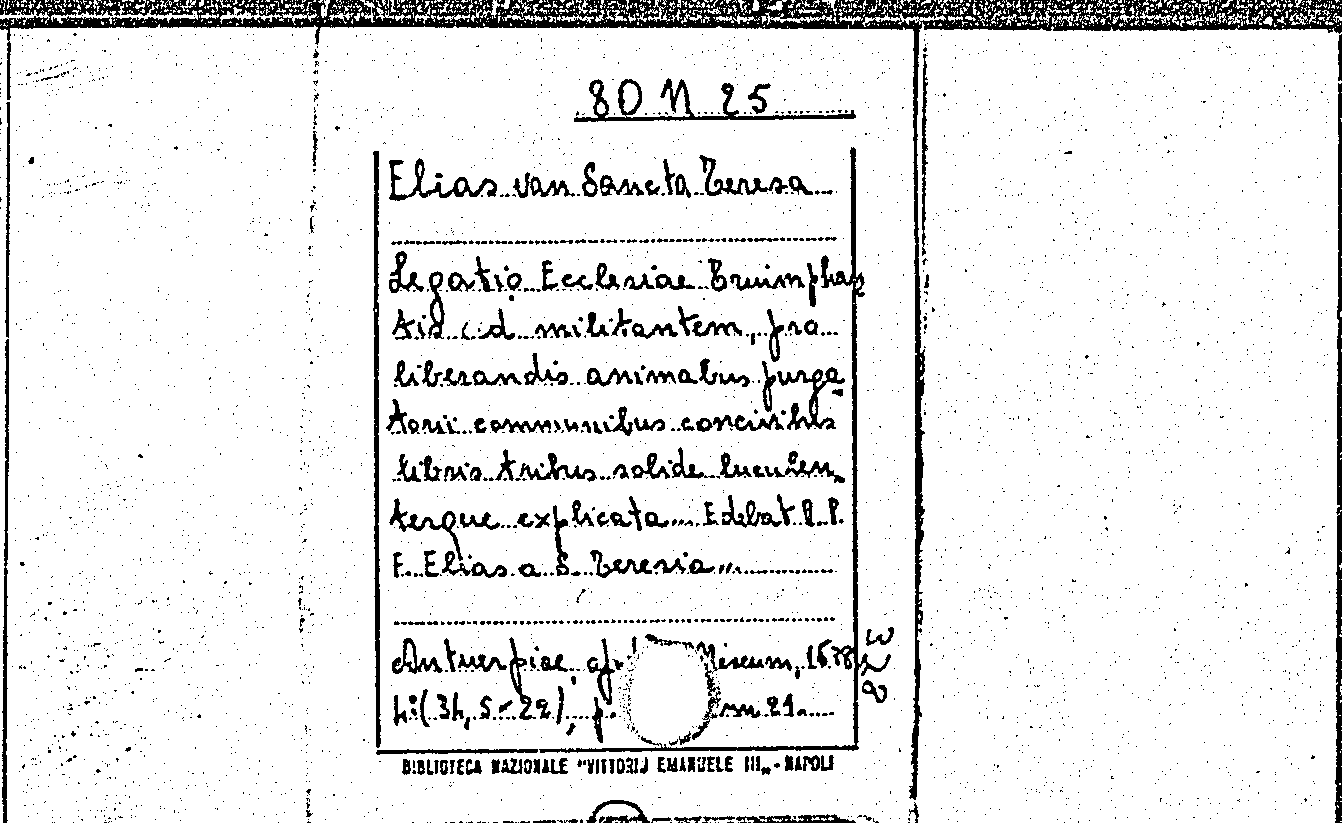 80 N 25
Elias van Sancta Teresa
Legatio Ecclesiae Triumphan
tis ad militantem, pro
liberandis animabus purga
torii communibus concivibus
libris tribus solide luculen
terque explicata... Edebat R. P.
F. Elias a S. Teresia...
Antuerpiae, Miseum, 1638
(3h, 5-22), p. 21.
BIBLIOTECA NAZIONALE "VITTORIO EMANUELE III" - NAPOLI